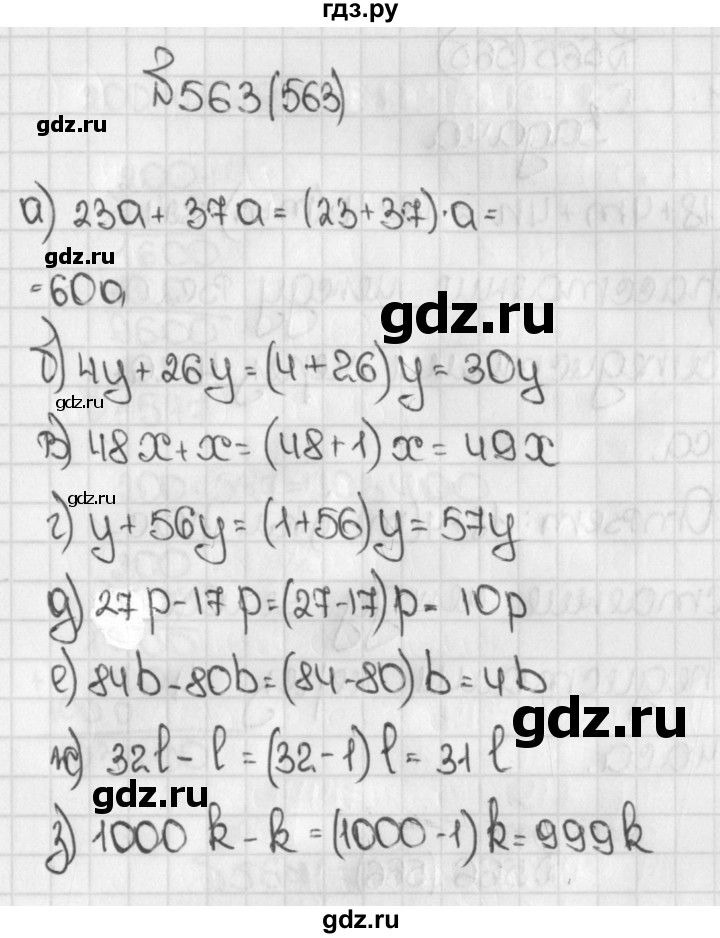 гдз.ру
№563(563)
gdz.ru
а) 23а + 37а = (23+37)·а =
gdz.ru
=60а
gdz.ru
б) 4y + 26y = (4+26)y = 30y
gdz.ru
в) 48x + x = (48+1)x = 49x
gdz.ru
г) y + 56y = (1+56)y = 57y
д) 27p - 17p = (27-17)p = 10p
е) 84b - 80b = (84-80)b = 4b
gdz.ru
ж) 32l - l = (32-1)l = 31l
gdz.ru
з) 1000k - k = (1000-1)k = 999k
gdz.ru